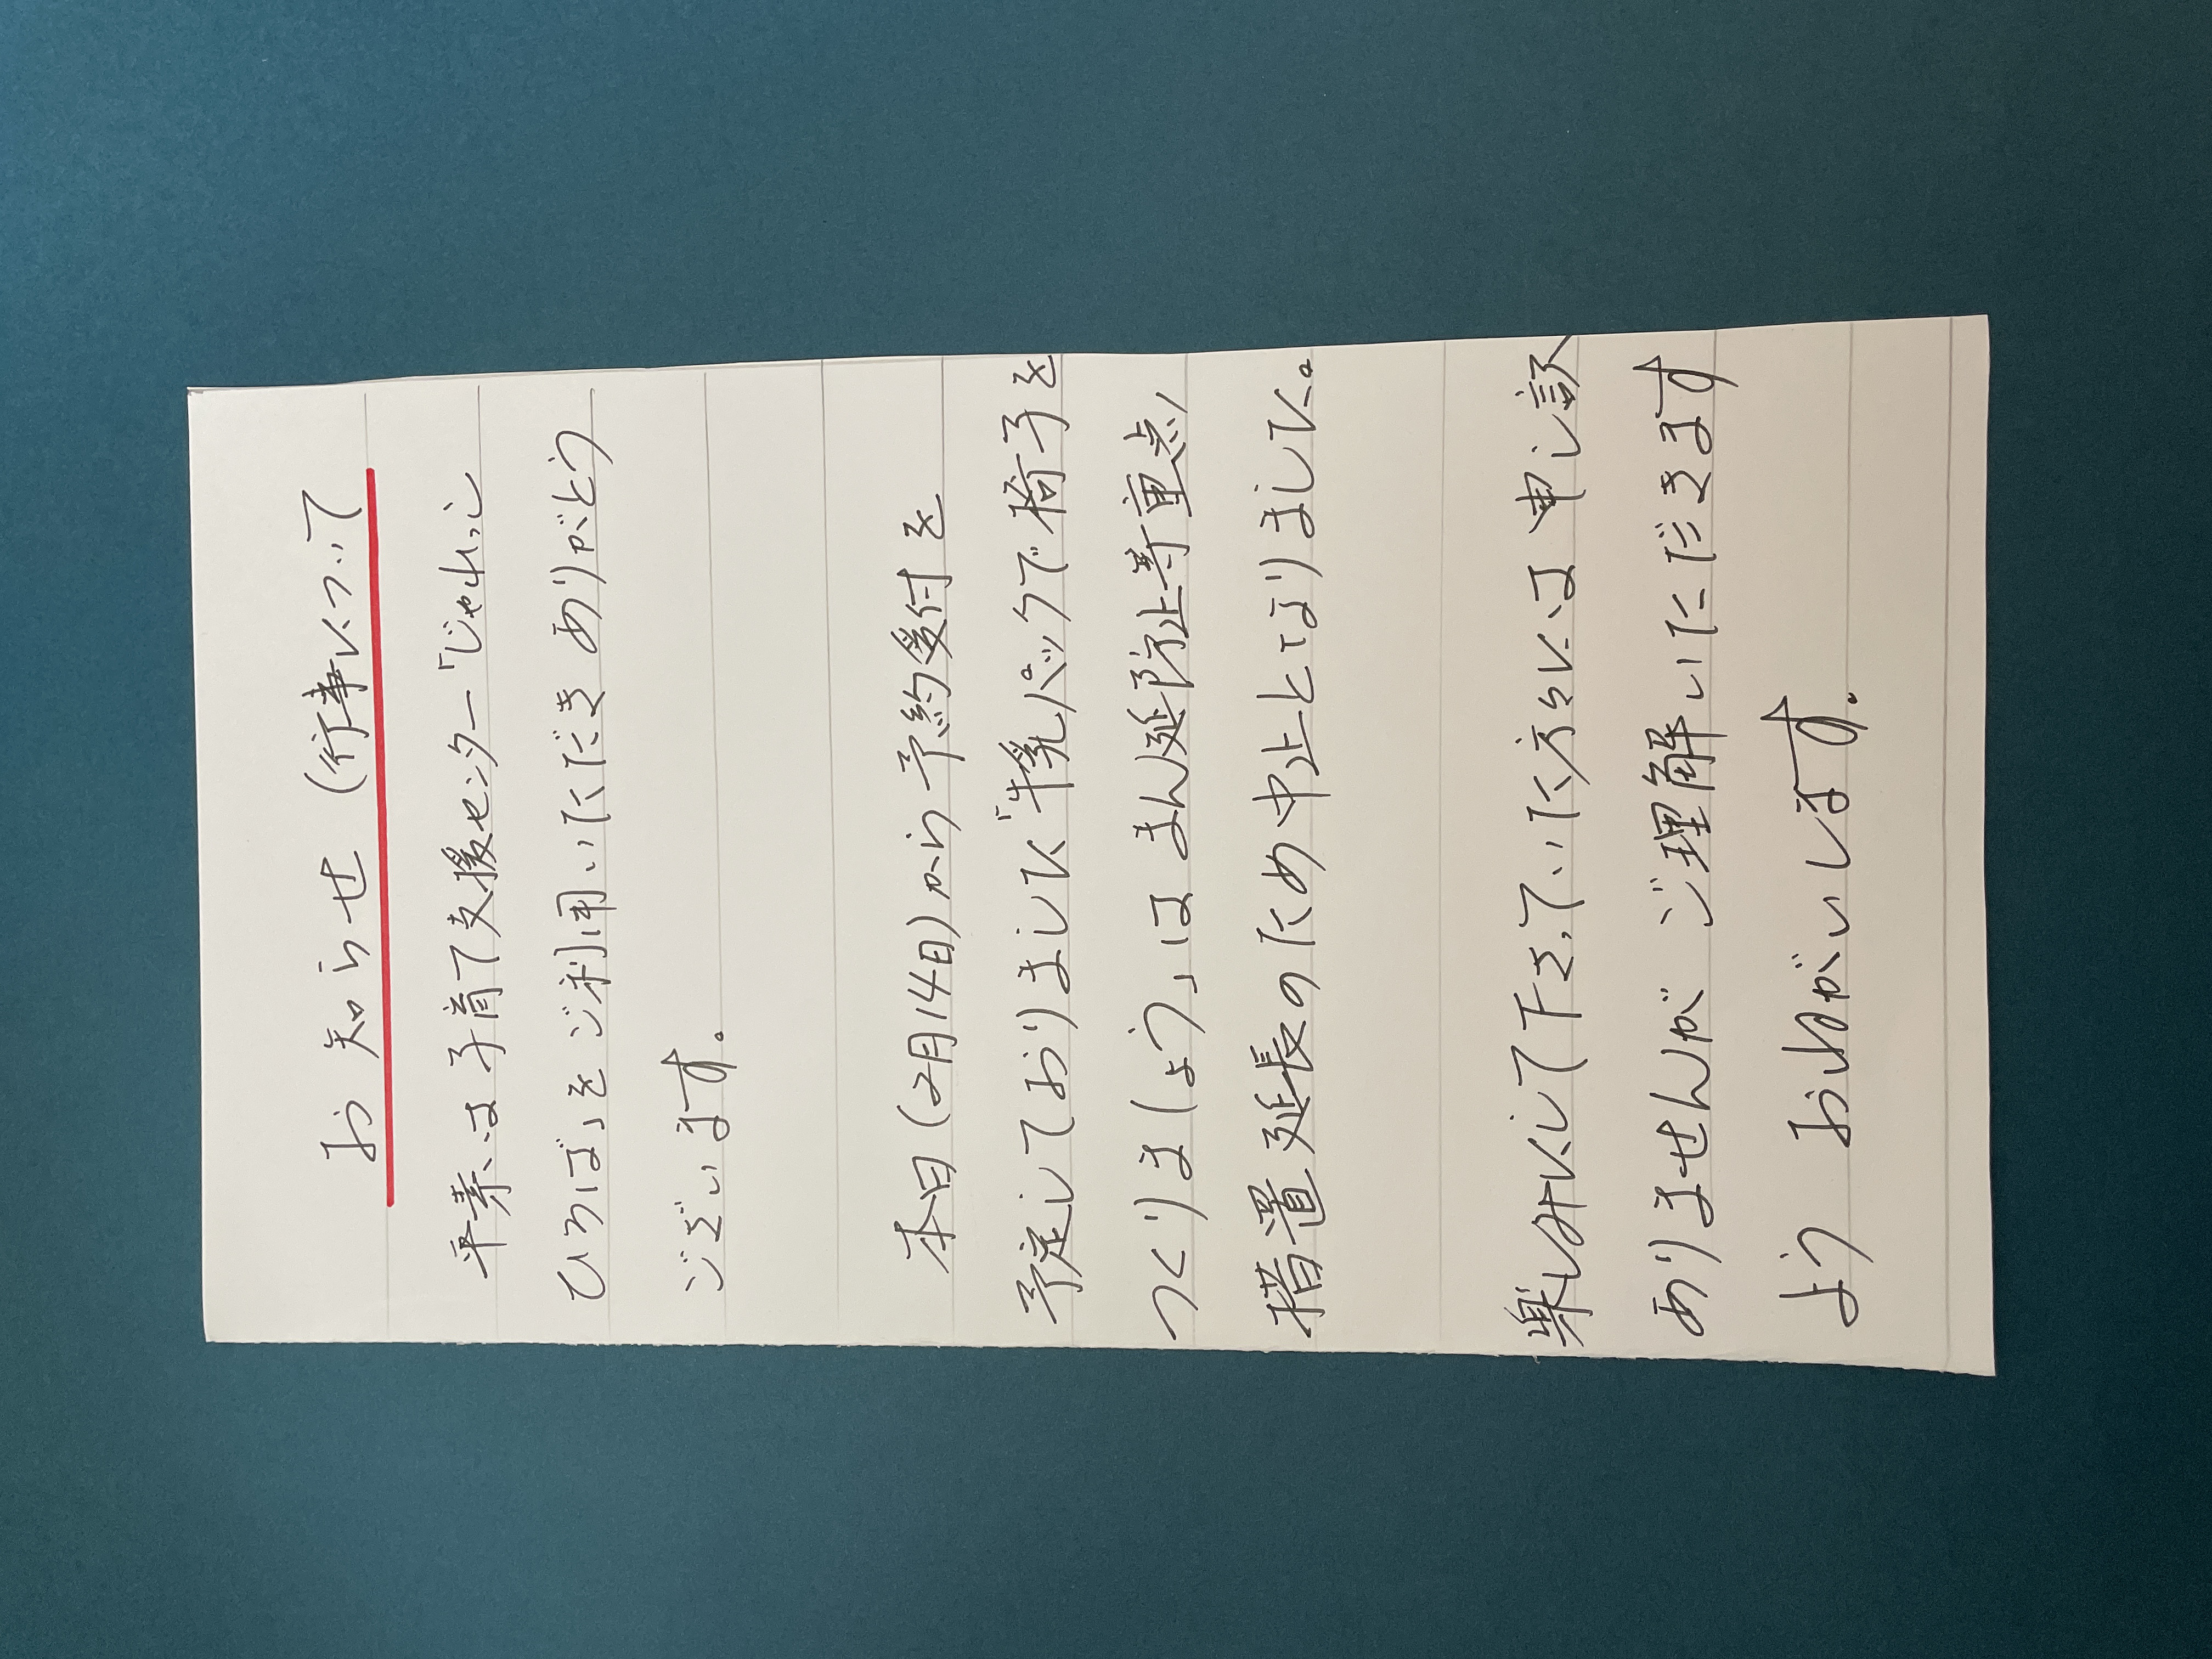 お知らせ (行事について
平素は子育て支援センター「じゃれっこ
ひろば」をご利用いただき ありがとう
ございます。
本日(2月14日)から予約受付を
予定しておりました「牛乳パックで椅子を
つくりましょう」は まん延防止等重点
措置延長のため中止となりました。
楽しみにして下さっていた方々には申し訳
ありませんが ご理解いただきます
よう おねがいします。